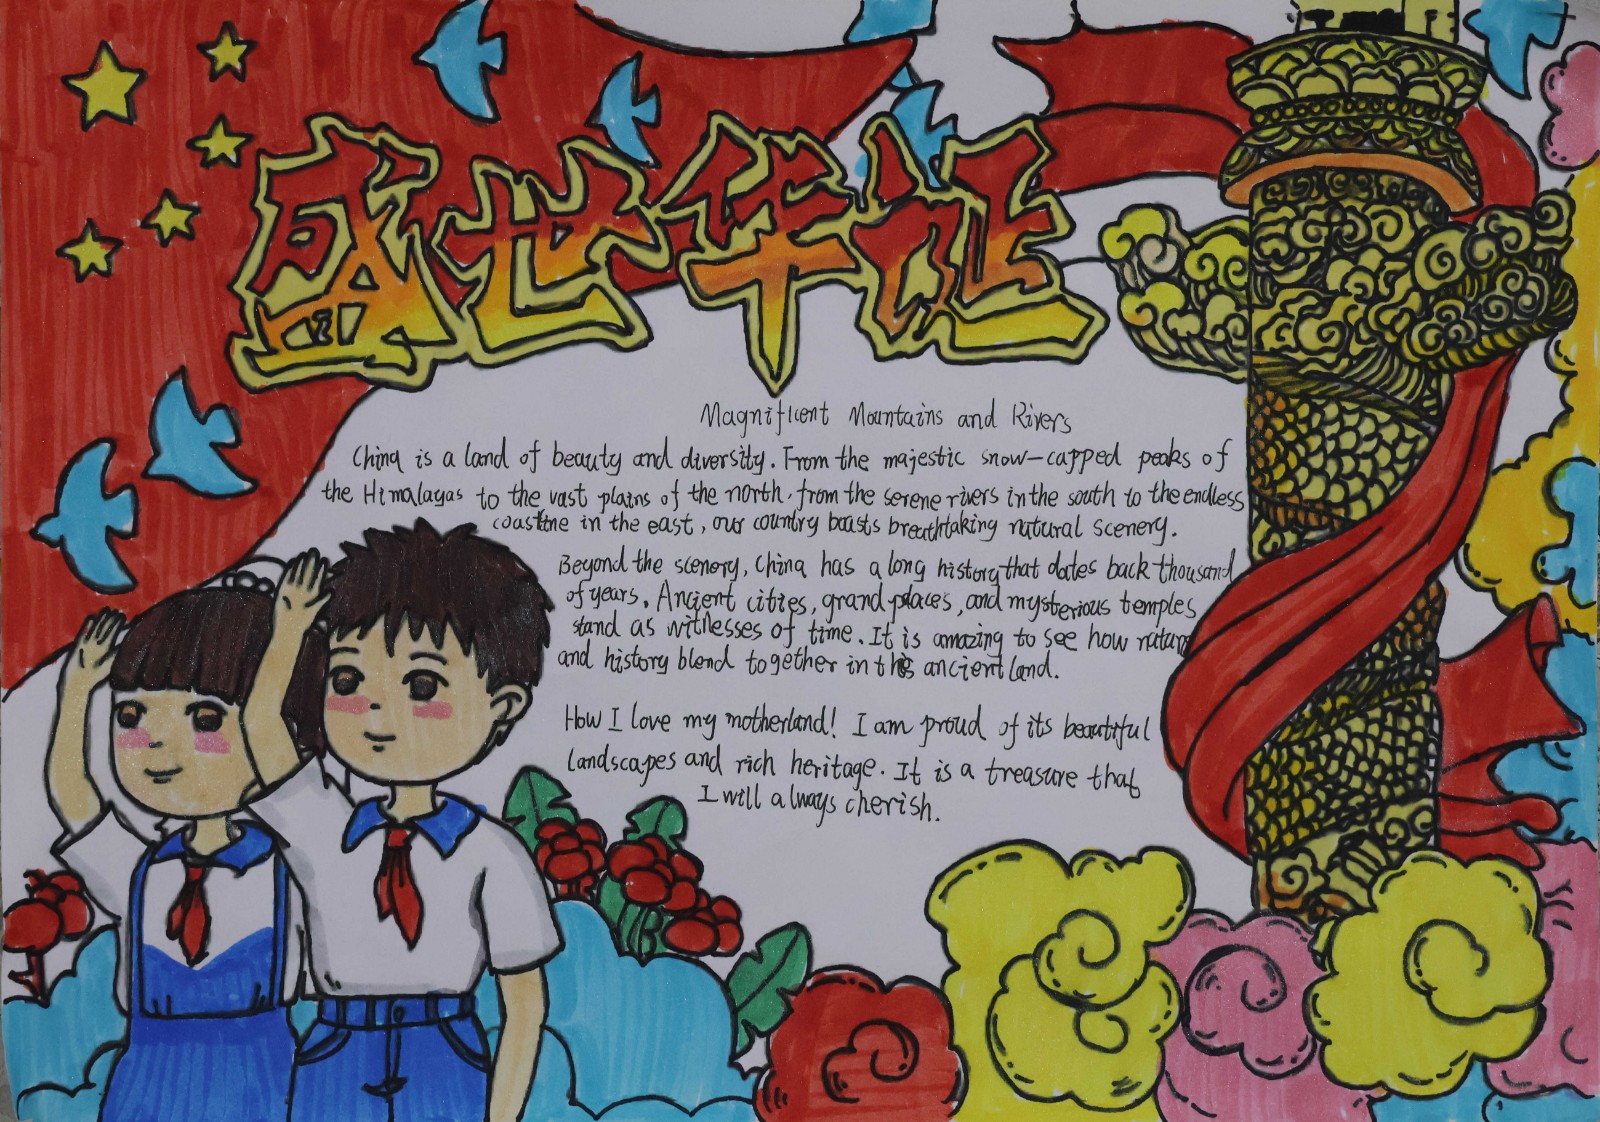 盛世华诞
Magnificent Mountains and Rivers
China is a land of beauty and diversity. From the majestic snow-capped peaks of
the Himalayas to the vast plains of the north, from the serene rivers in the south to the endless
coastline in the east, our country boasts breathtaking natural scenery.
Beyond the scenery, China has a long history that dates back thousand
of years. Ancient cities, grand places, and mysterious temples
stand as witnesses of time. It is amazing to see how nature
and history blend together in this ancient land.
How I love my motherland! I am proud of its beautiful
landscapes and rich heritage. It is a treasure that
I will always cherish.